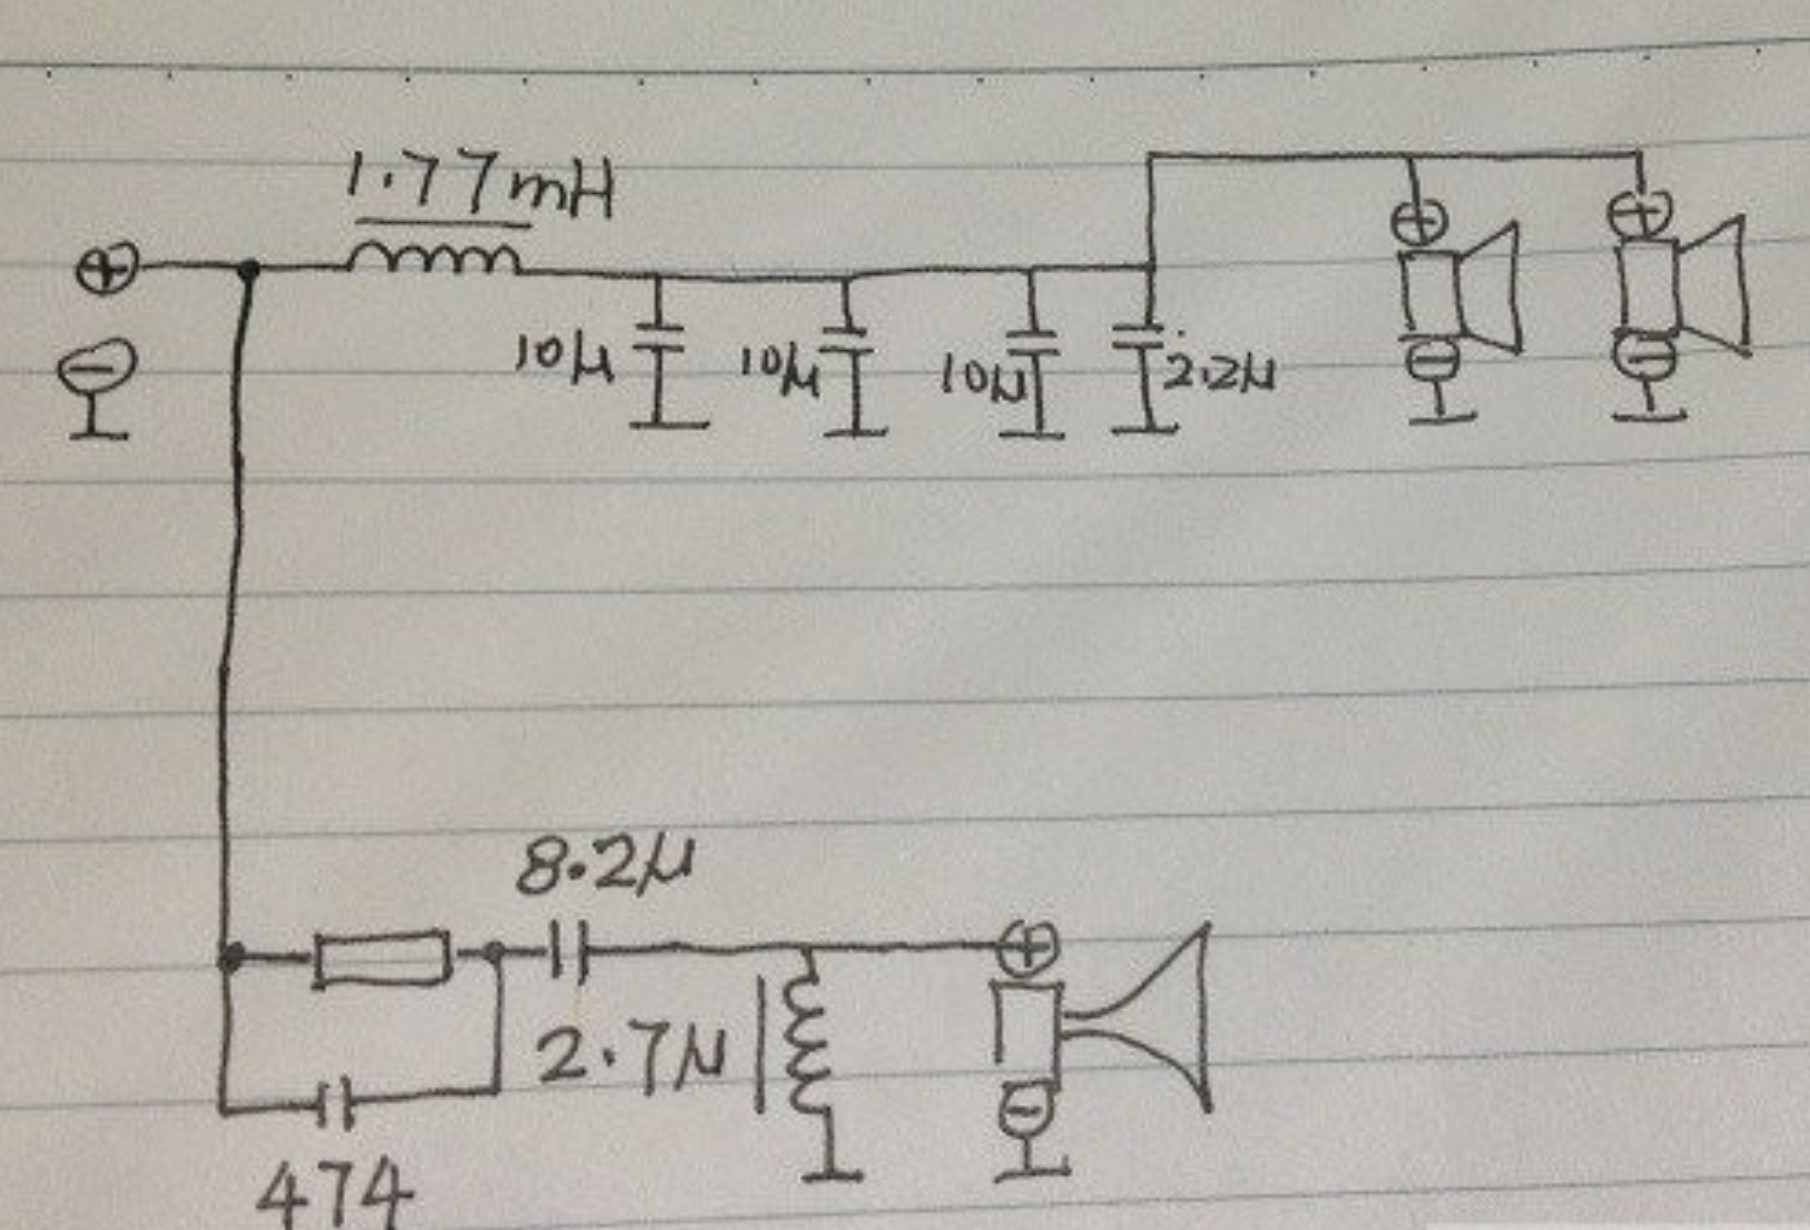 1.77mH
10μ 10μ 10μ 2.2μ
8.2μ
2.7μ
474